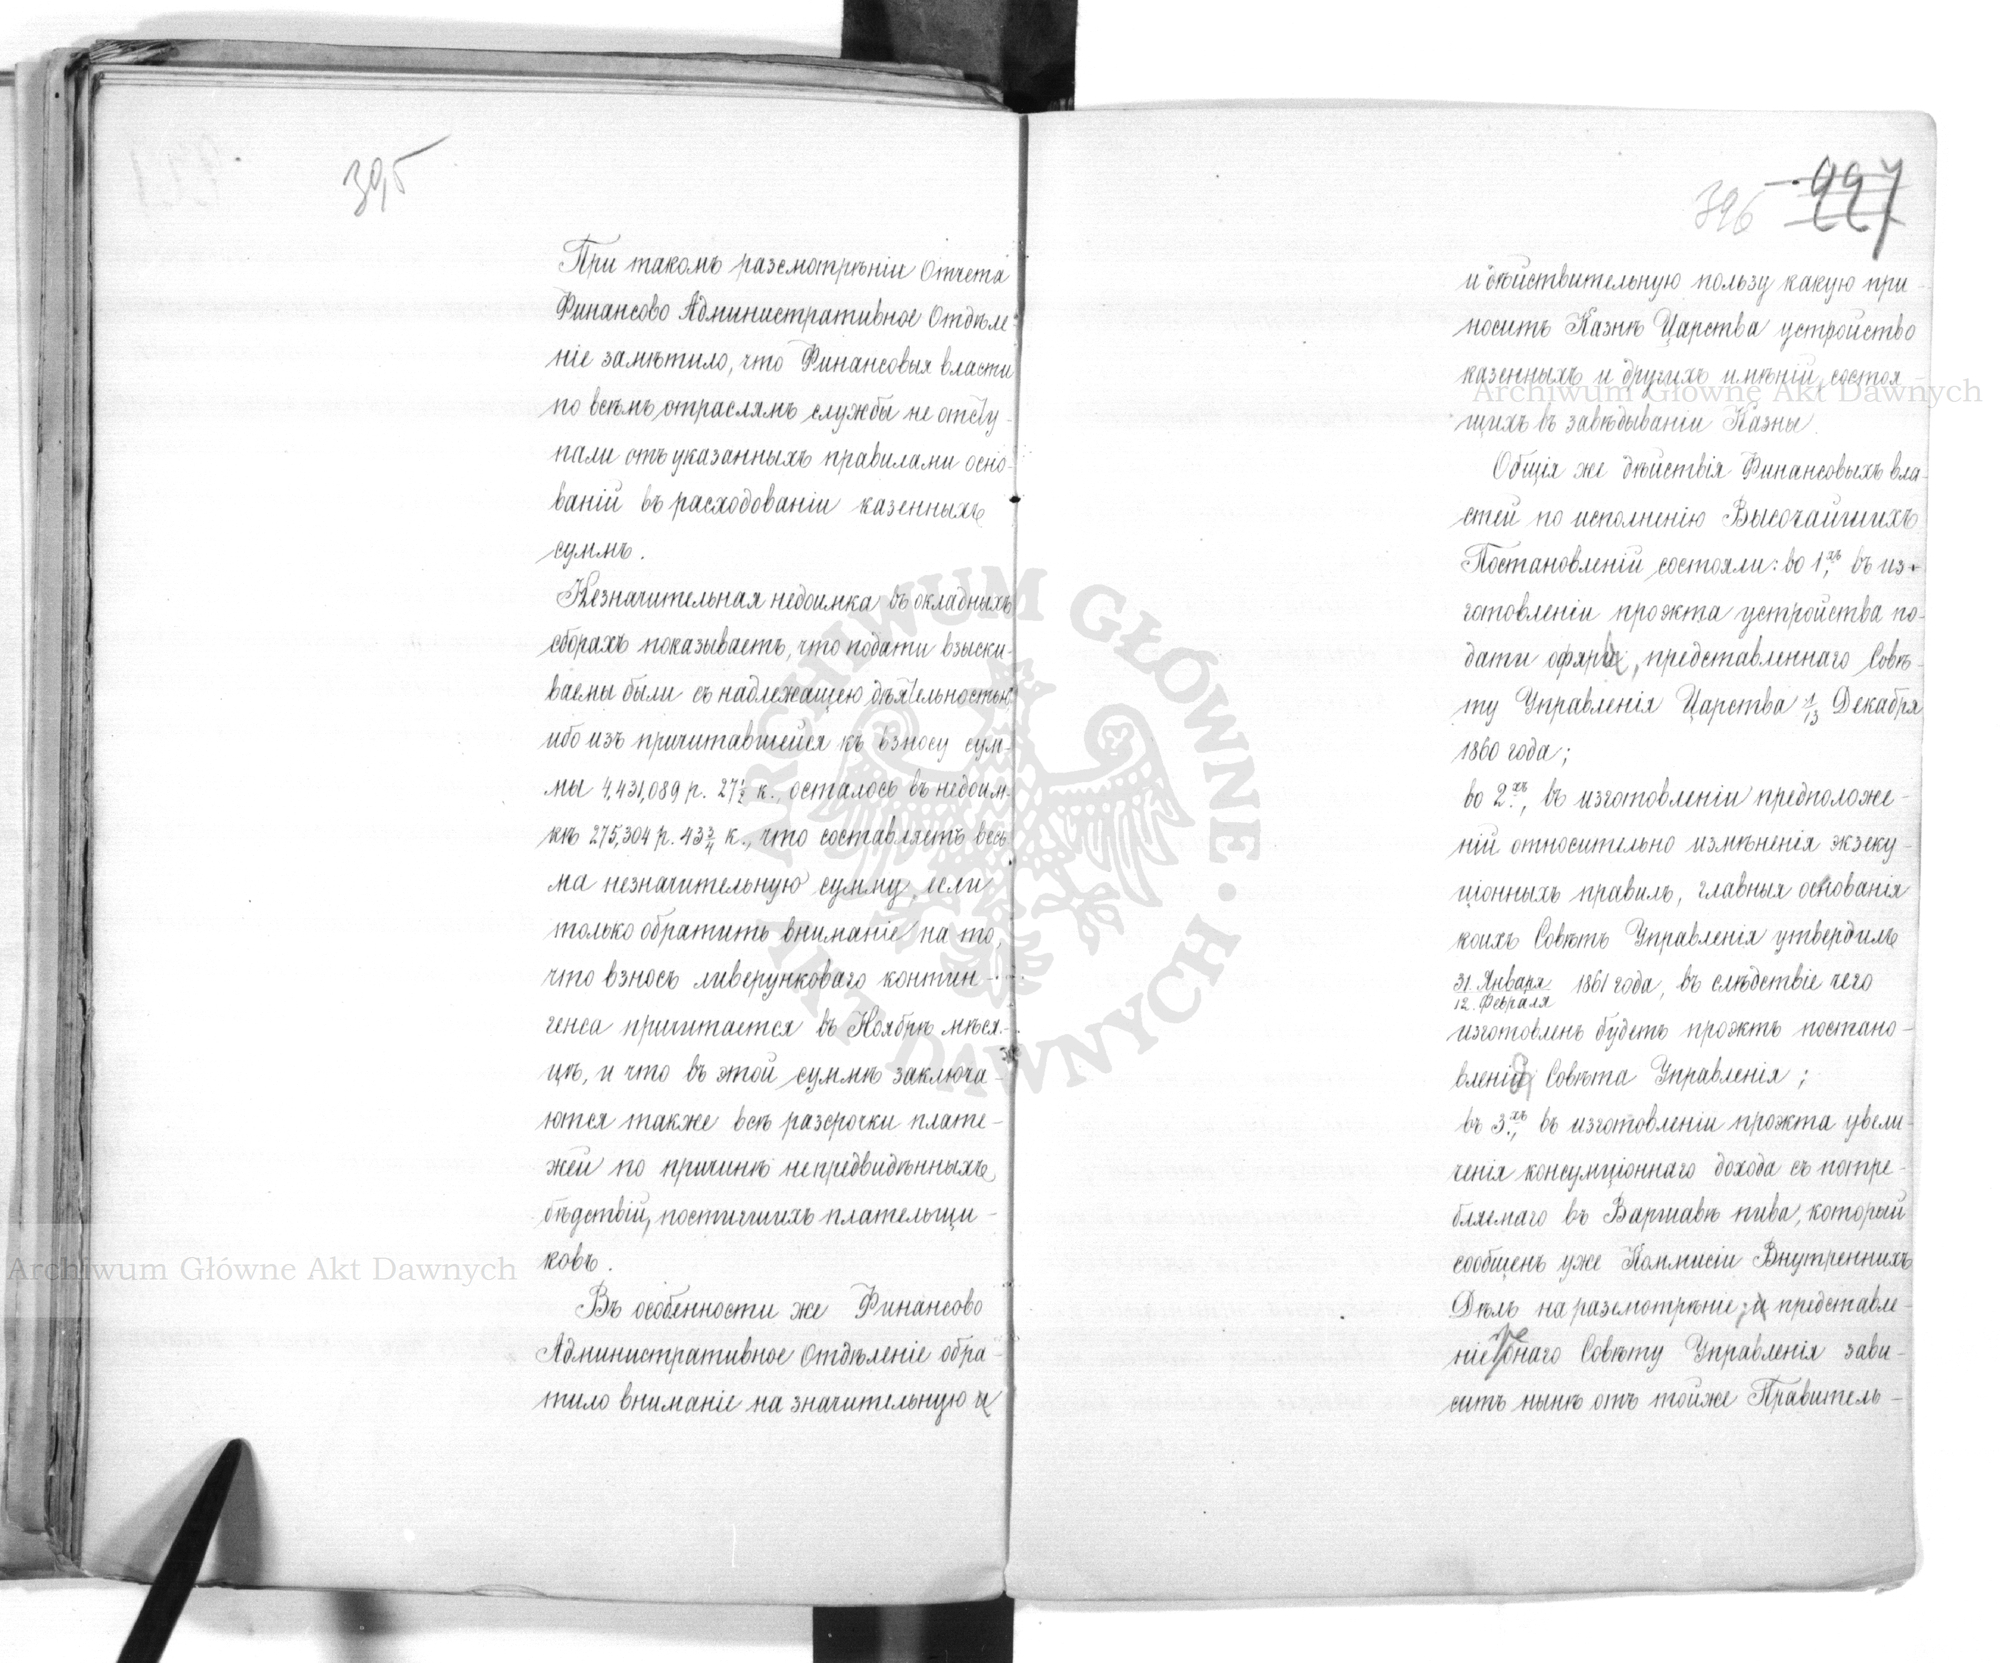 395
При такомъ разсмотрѣніи Отчета
Финансово Административное Отдѣле-
ніе замѣтило, что Финансовыя власти
по всѣмъ отраслямъ службы не отсту-
пали отъ указанныхъ правилами осно-
ваній въ расходованіи казенныхъ
суммъ.
Незначительная недоимка въ окладныхъ
сборахъ показываетъ, что подати взыски-
ваемы были съ надлежащею дѣятельностью
ибо изъ причитавшейся къ взносу сум-
мы 4,431,089 р. 27½ к., осталось въ недоим-
кѣ 275,304 р. 43¾ к., что составляетъ весь
ма незначительную сумму, если
только обратить вниманіе на то,
что взносъ ливерунковаго контин-
генса причитается въ Ноябрѣ мѣся-
цѣ, и что въ этой суммѣ заключа-
ются также всѣ разсрочки плате-
жей по причинѣ непредвидѣнныхъ
бѣдствій, постигшихъ плательщи-
ковъ.
Въ особенности же Финансово
Административное Отдѣленіе обра-
тило вниманіе на значительную и
396 227
и дѣйствительную пользу какую при-
носитъ Казнѣ Царства устройство
казенныхъ и другихъ имѣній, состоя-
щихъ въ завѣдываніи Казны.
Общія же дѣйствія Финансовыхъ вла-
стей по исполненію Высочайшихъ
Постановленій состояли: во 1.хъ, въ из-
готовленіи проэкта устройства по-
дати офяры, представленнаго Совѣ-
ту Управленія Царства 1/13 Декабря
1860 года;
во 2.хъ, въ изготовленіи предположе-
ній относительно измѣненія экзеку-
ціонныхъ правилъ, главныя основанія
коихъ Совѣтъ Управленія утвердилъ
31 Января/12 Февраля 1861 года, въ слѣдствіе чего
изготовленъ будетъ проэктъ постано-
вленія Совѣта Управленія;
въ 3.хъ, въ изготовленіи проэкта увели-
ченія консумціоннаго дохода съ потре-
бляемаго въ Варшавѣ пива, который
сообщенъ уже Коммисіи Внутреннихъ
Дѣлъ на разсмотрѣніе; и представле-
ніе онаго Совѣту Управленія зави-
ситъ нынѣ отъ тойже Правитель-
Archiwum Główne Akt Dawnych
Archiwum Główne Akt Dawnych
ARCHIWUM GŁÓWNE AKT DAWNYCH